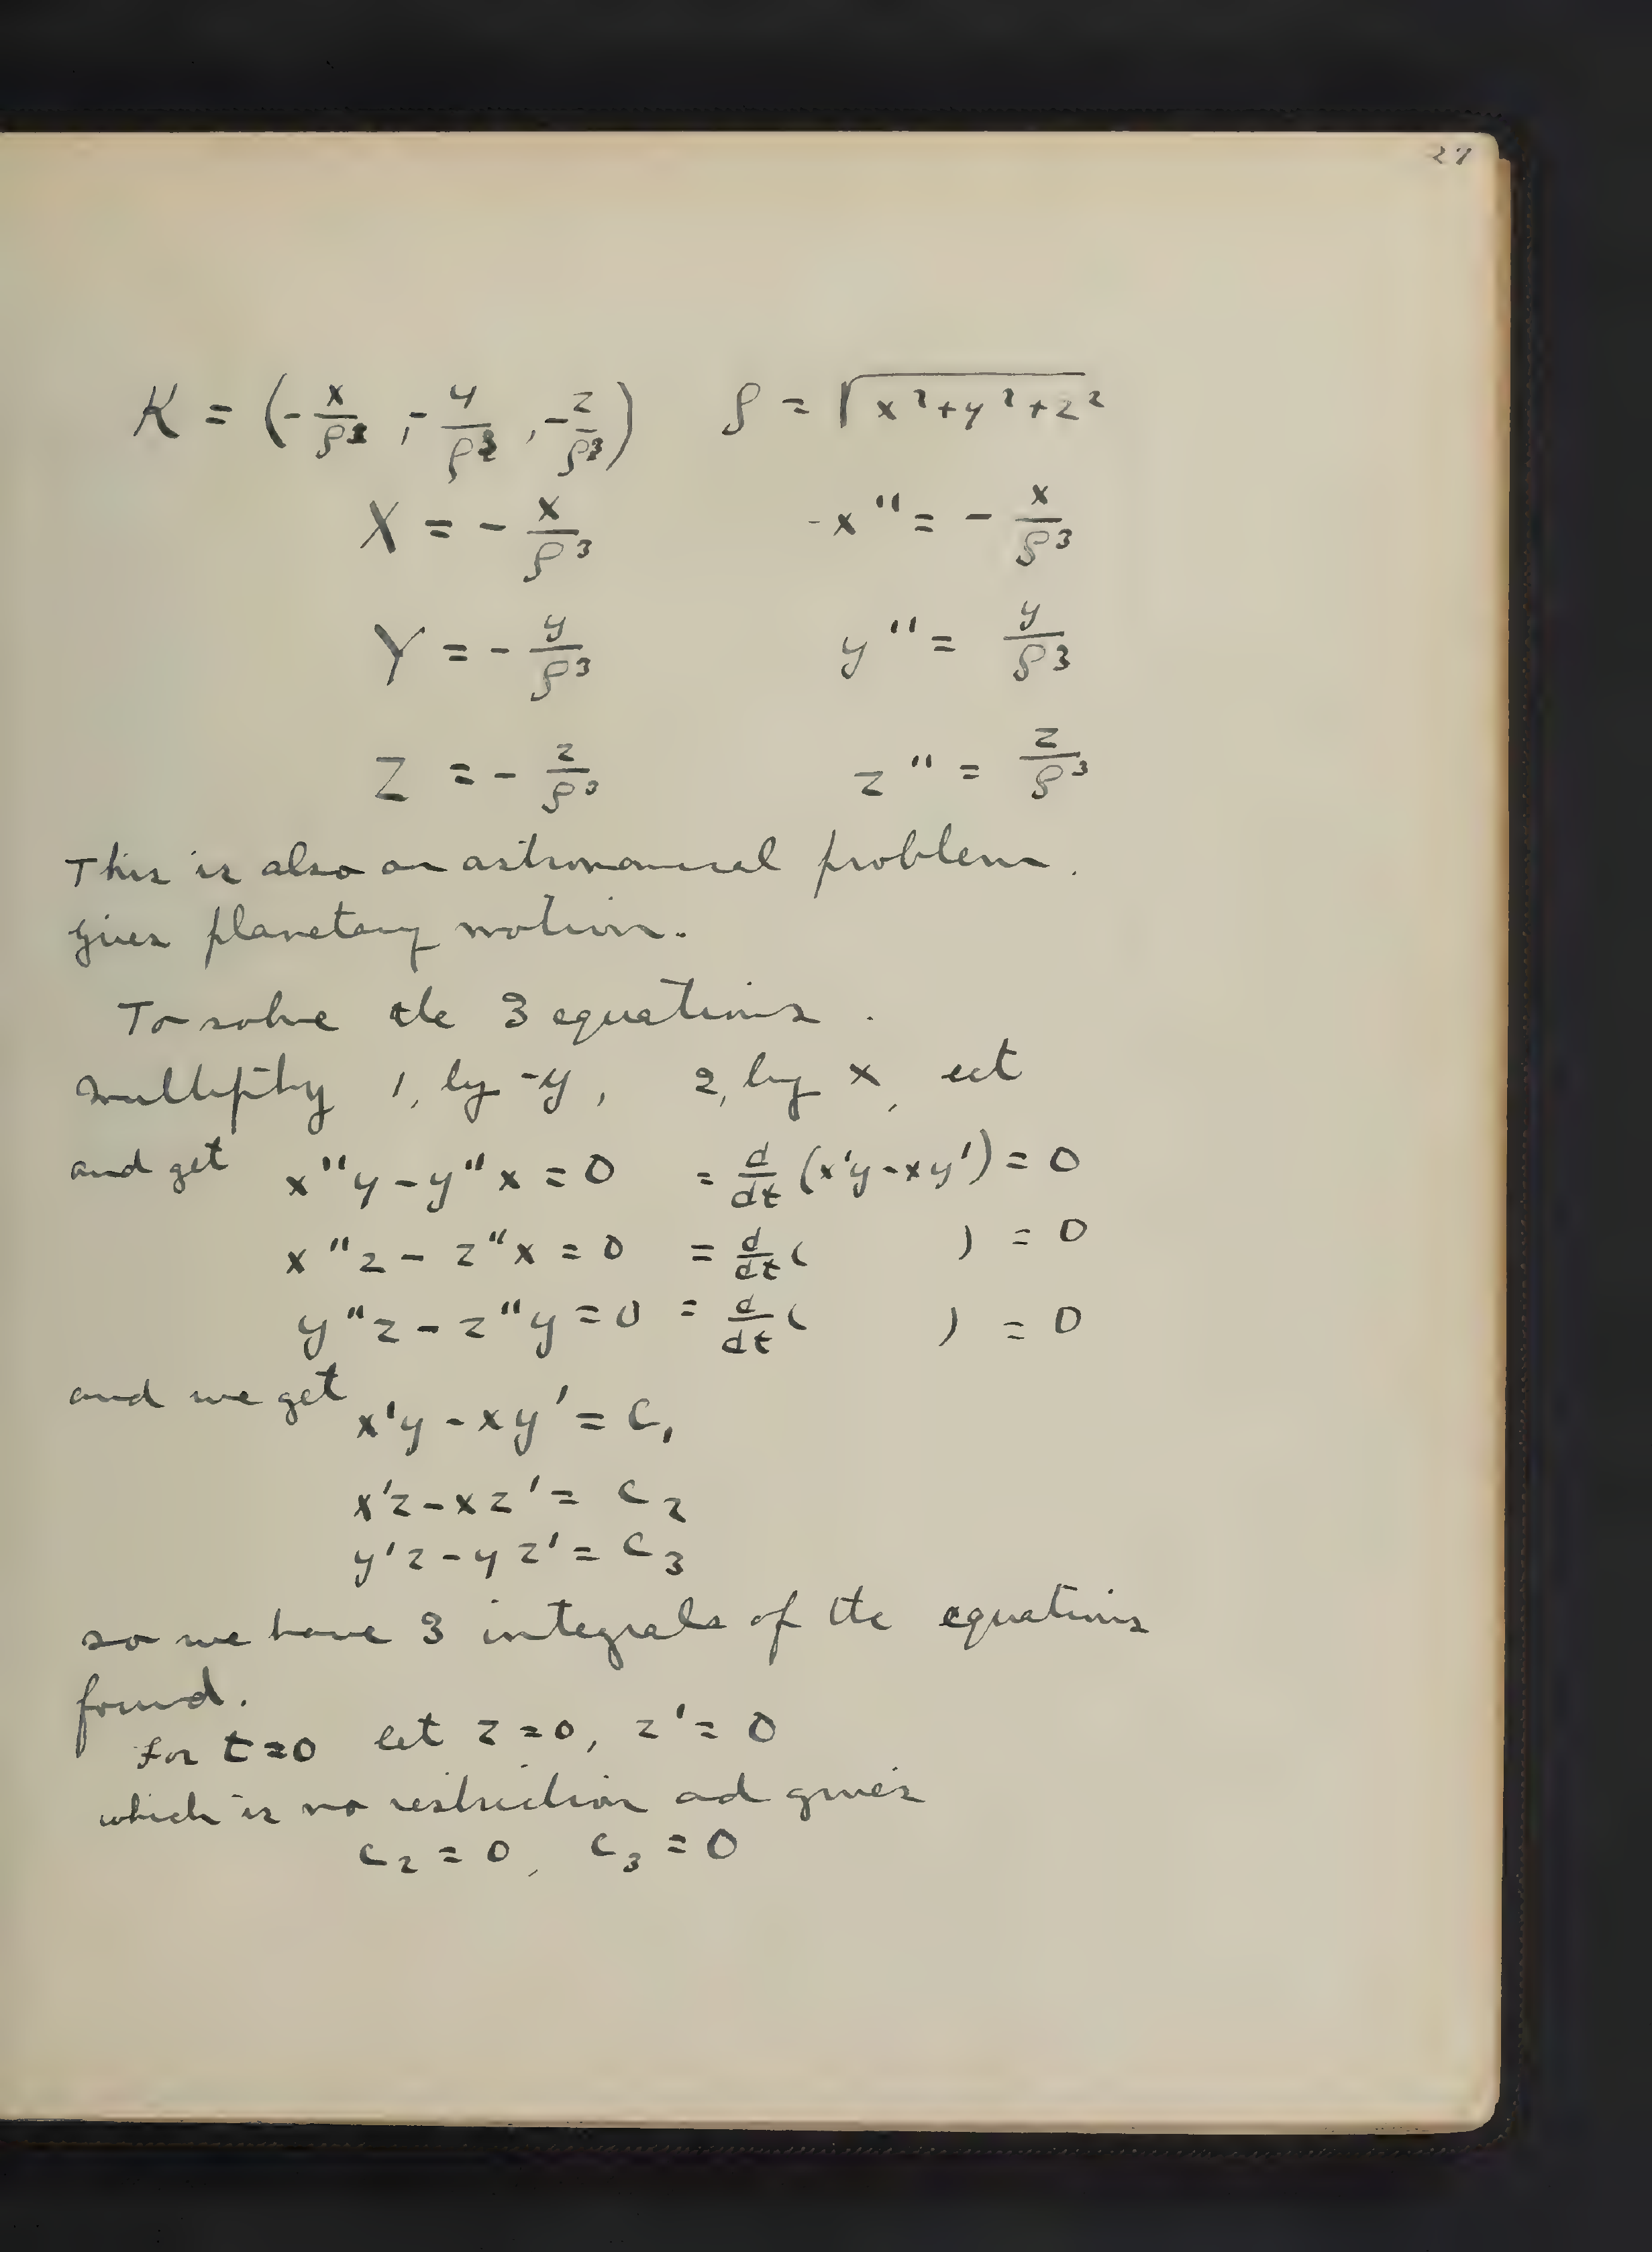 27
K = (-x/ρ³, -y/ρ³, -z/ρ³) ρ = √(x²+y²+z²)
X = - x/ρ³ -x" = - x/ρ³
Y = - y/ρ³ y" = y/ρ³
Z = - z/ρ³ z" = z/ρ³
This is also an astronomical problem.
Gives planetary motion.
To solve the 3 equations.
Multiply 1, by -y, 2, by x, ect
and get x"y - y"x = 0 = d/dt (x'y - xy') = 0
x"z - z"x = 0 = d/dt ( ) = 0
y"z - z"y = 0 = d/dt ( ) = 0
and we get
x'y - xy' = C₁
x'z - xz' = C₂
y'z - yz' = C₃
so we have 3 integrals of the equations
found.
For t=0 let z=0, z'=0
which is no restriction ad gives
C₂ = 0, C₃ = 0